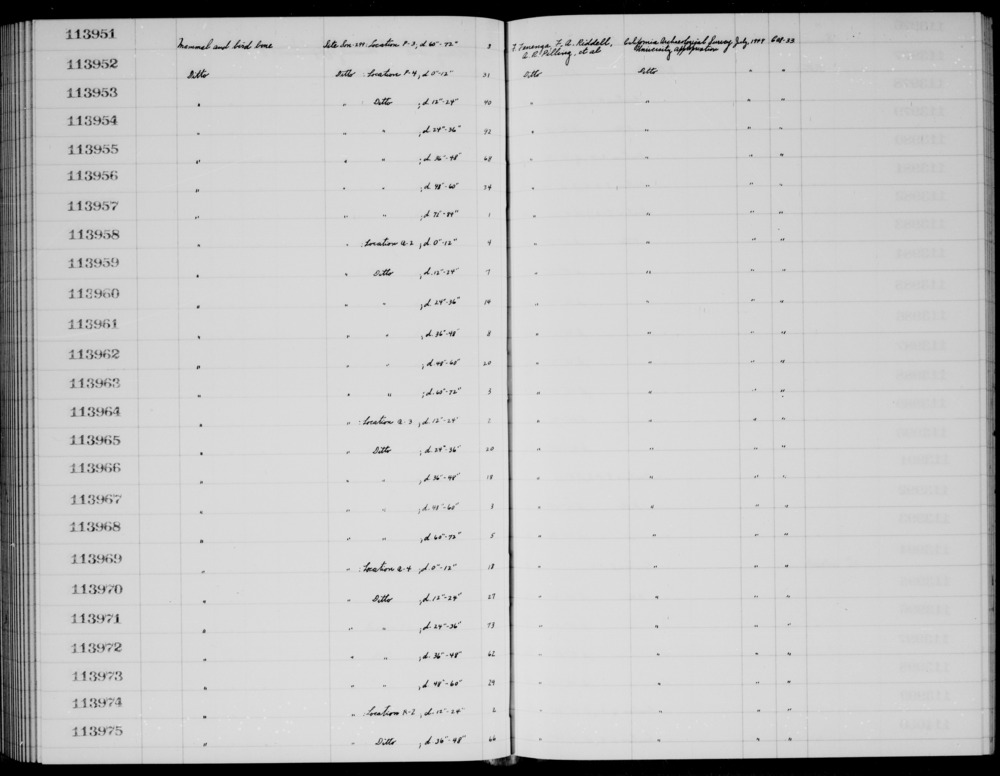 113951 Mammal and bird bone Site Son-299: Location P-3; d. 60"-72" 3 F. Fenenga, F. A. Riddell, A. R. Pilling, et al California Archaeological Survey University Appropriation July, 1949 Cat. 33
113952 Ditto Ditto : Location P-4; d. 0"-12" 31 Ditto Ditto " "
113953 " " Ditto ; d. 12"-24" 40 " " " "
113954 " " " ; d. 24"-36" 92 " " " "
113955 " " " ; d. 36"-48" 68 " " " "
113956 " " " ; d. 48"-60" 34 " " " "
113957 " " " ; d. 72"-84" 1 " " " "
113958 " " : Location Q-2 ; d. 0"-12" 4 " " " "
113959 " " Ditto ; d. 12"-24" 7 " " " "
113960 " " " ; d. 24"-36" 14 " " " "
113961 " " " ; d. 36"-48" 8 " " " "
113962 " " " ; d. 48"-60" 20 " " " "
113963 " " " ; d. 60"-72" 3 " " " "
113964 " " : Location Q-3 ; d. 12"-24" " " " "
113965 " " Ditto ; d. 24"-36" 20 " " " "
113966 " " " ; d. 36"-48" 18 " " " "
113967 " " " ; d. 48"-60" 3 " " " "
113968 " " " ; d. 60"-72" 5 " " " "
113969 " " : Location Q-4 ; d. 0"-12" 18 " " " "
113970 " " Ditto ; d. 12"-24" 27 " " " "
113971 " " " ; d. 24"-36" 73 " " " "
113972 " " " ; d. 36"-48" 62 " " " "
113973 " " " ; d. 48"-60" 29 " " " "
113974 " " : Location R-2 ; d. 12"-24" 2 " " " "
113975 " " Ditto ; d. 36"-48" 66 " " " "